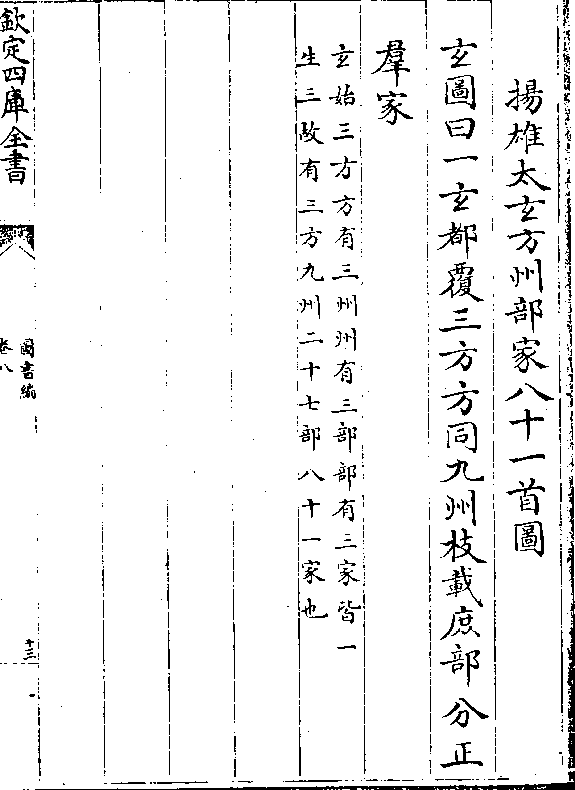 揚雄太玄方州部家八十一首圖
玄圖曰一玄都覆三方方同九州枝載庶部分正
羣家
玄始三方方有三州州有三部部有三家皆一
生三故有三方九州二十七部八十一家也
欽定四庫全書
圖書編
卷八
十三